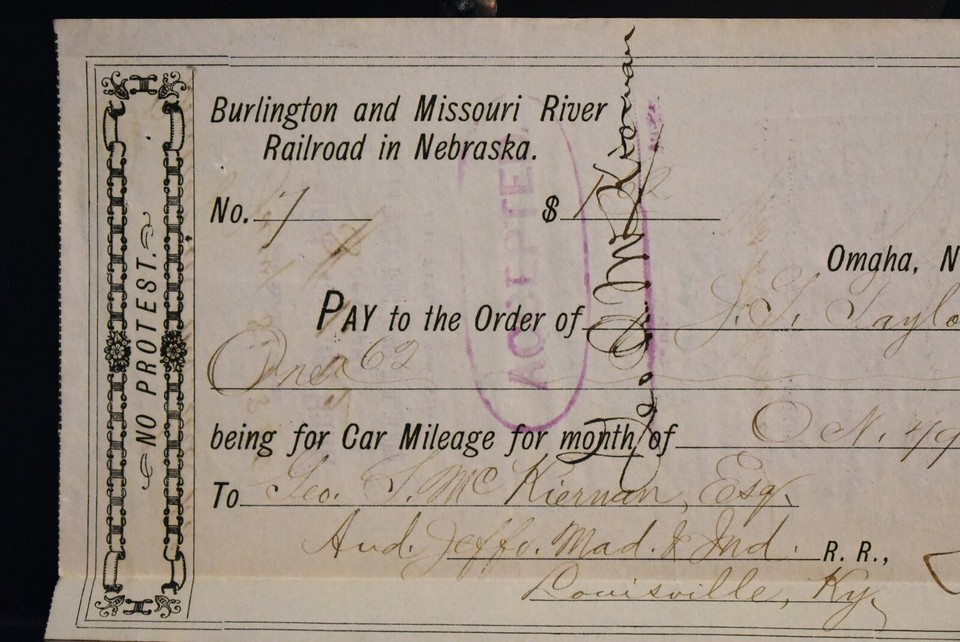 Burlington and Missouri River
Railroad in Nebraska.
No. 7 $
Omaha, N
PAY to the Order of J. T. Taylo
One 62
being for Car Mileage for month of
To Geo. S. McKiernan, Esq.
Aud. Jeffv. Mad. & Ind. R. R.,
Louisville, Ky.
NO PROTEST.
ACCEPTED
Geo. S. McKiernan